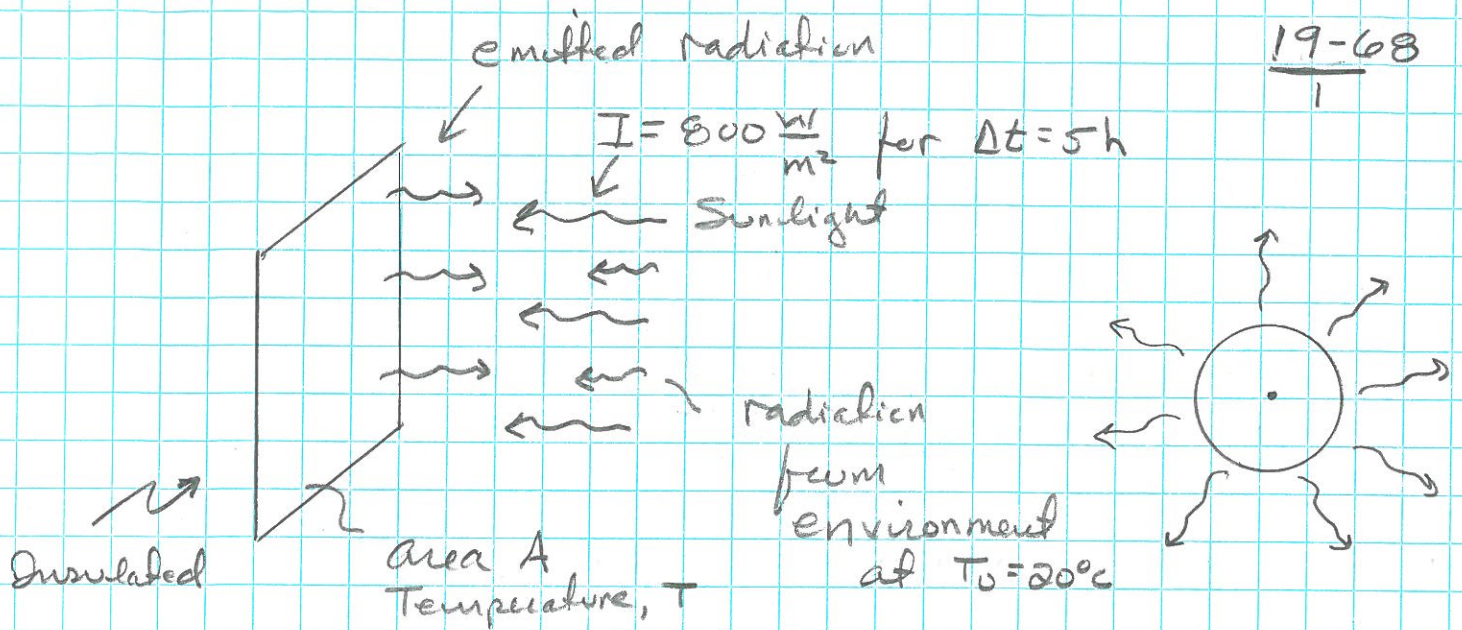 emitted radiation
19-68
1
I = 800 W/m² for Δt = 5h
Sunlight
radiation
from
environment
at T₀ = 20°C
Insulated
area A
Temperature, T